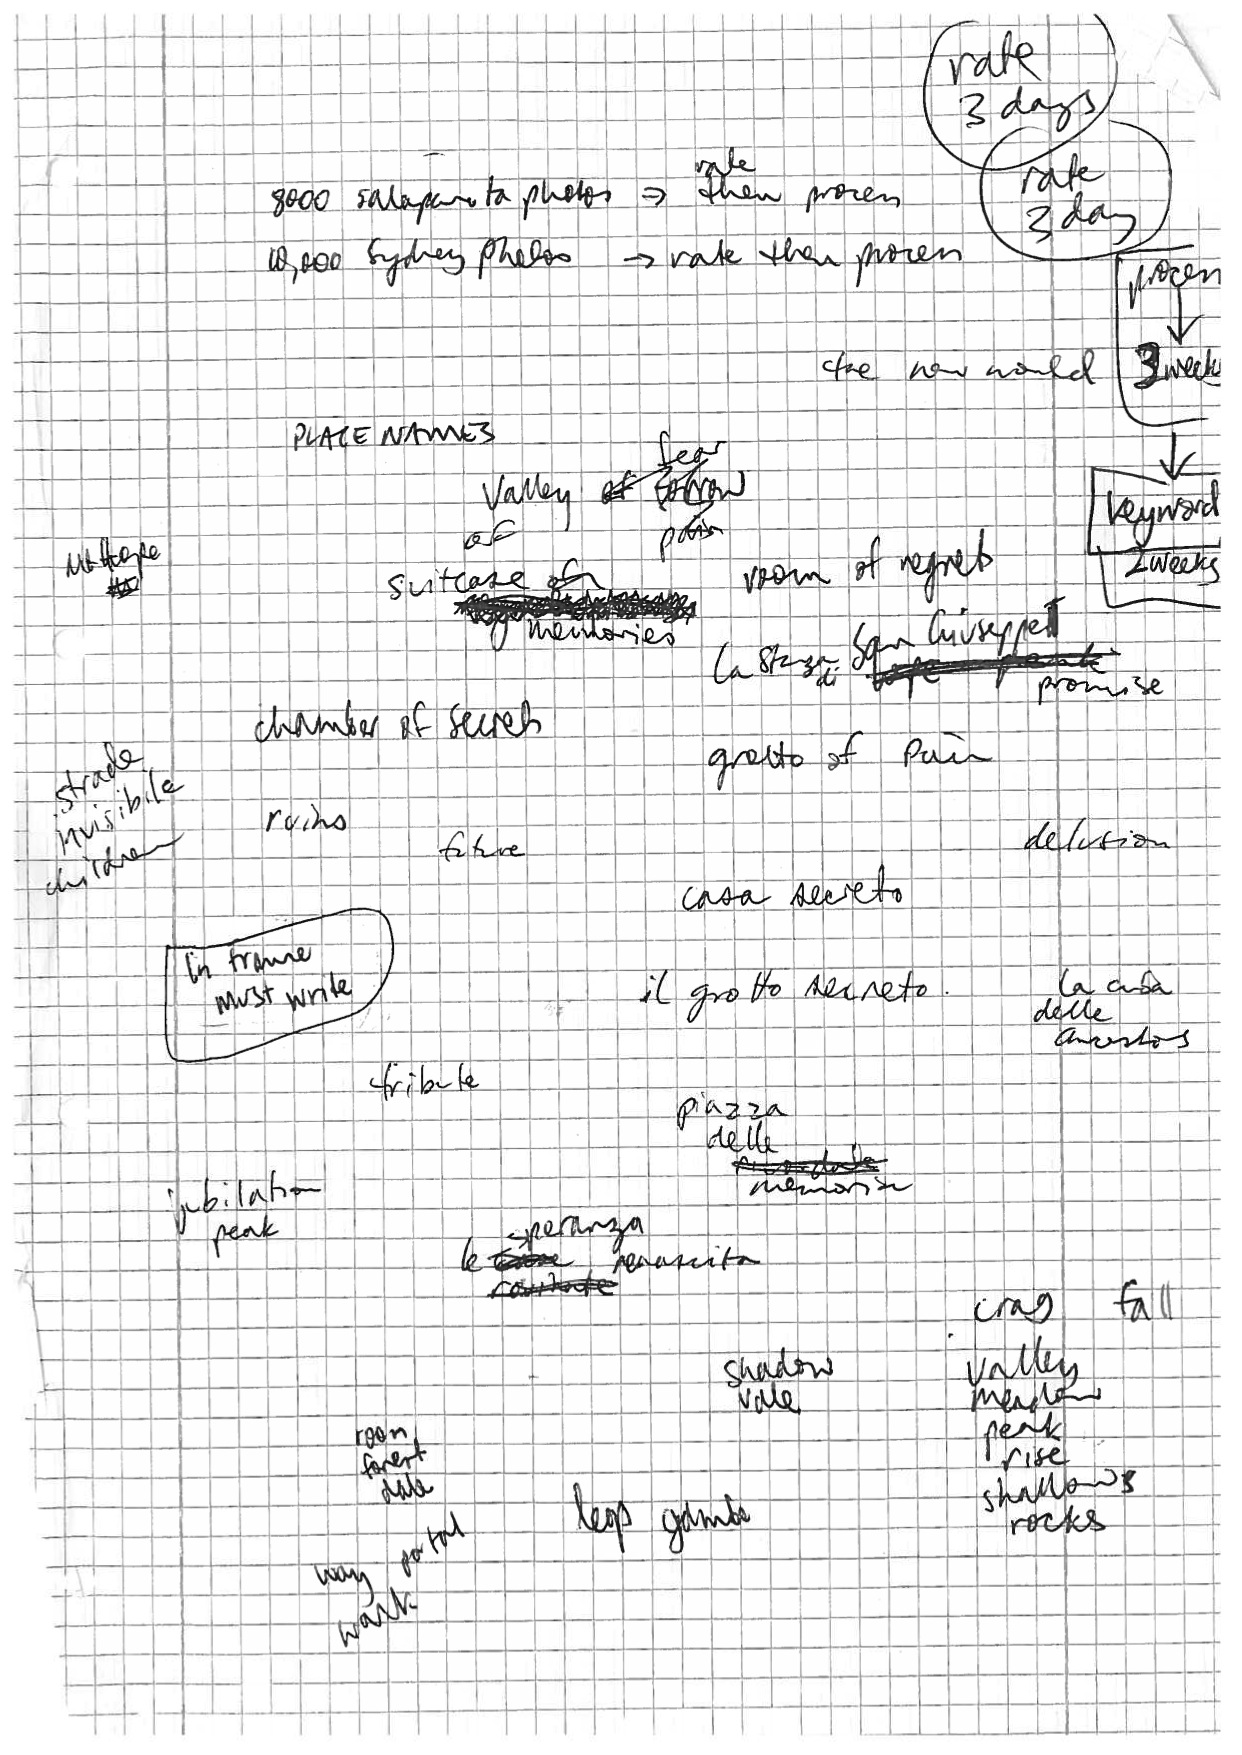 rate
3 days
rate
8000 salaparuta photos → then process
rate
3 day
10,000 Sydney photos → rate then process
process
the new world
3 weeks
PLACE NAMES
fear
Valley of sorrow
of pain
keyword
2 weeks
suitcase of
memories
room of regrets
San Giuseppe
La Stanza di
promise
chamber of secrets
grotto of Pain
strade
invisibile
children
ruins
future
delusion
casa secreto
in frame
must write
il grotto secreto.
la casa
delle
ancestors
tribute
piazza
delle
memoria
jubilation
peak
speranza
le renascita
crag fall
shadow
vale
valley
meadow
peak
rise
shallows
rocks
room
forest
dale
legs gamba
way portal
walk